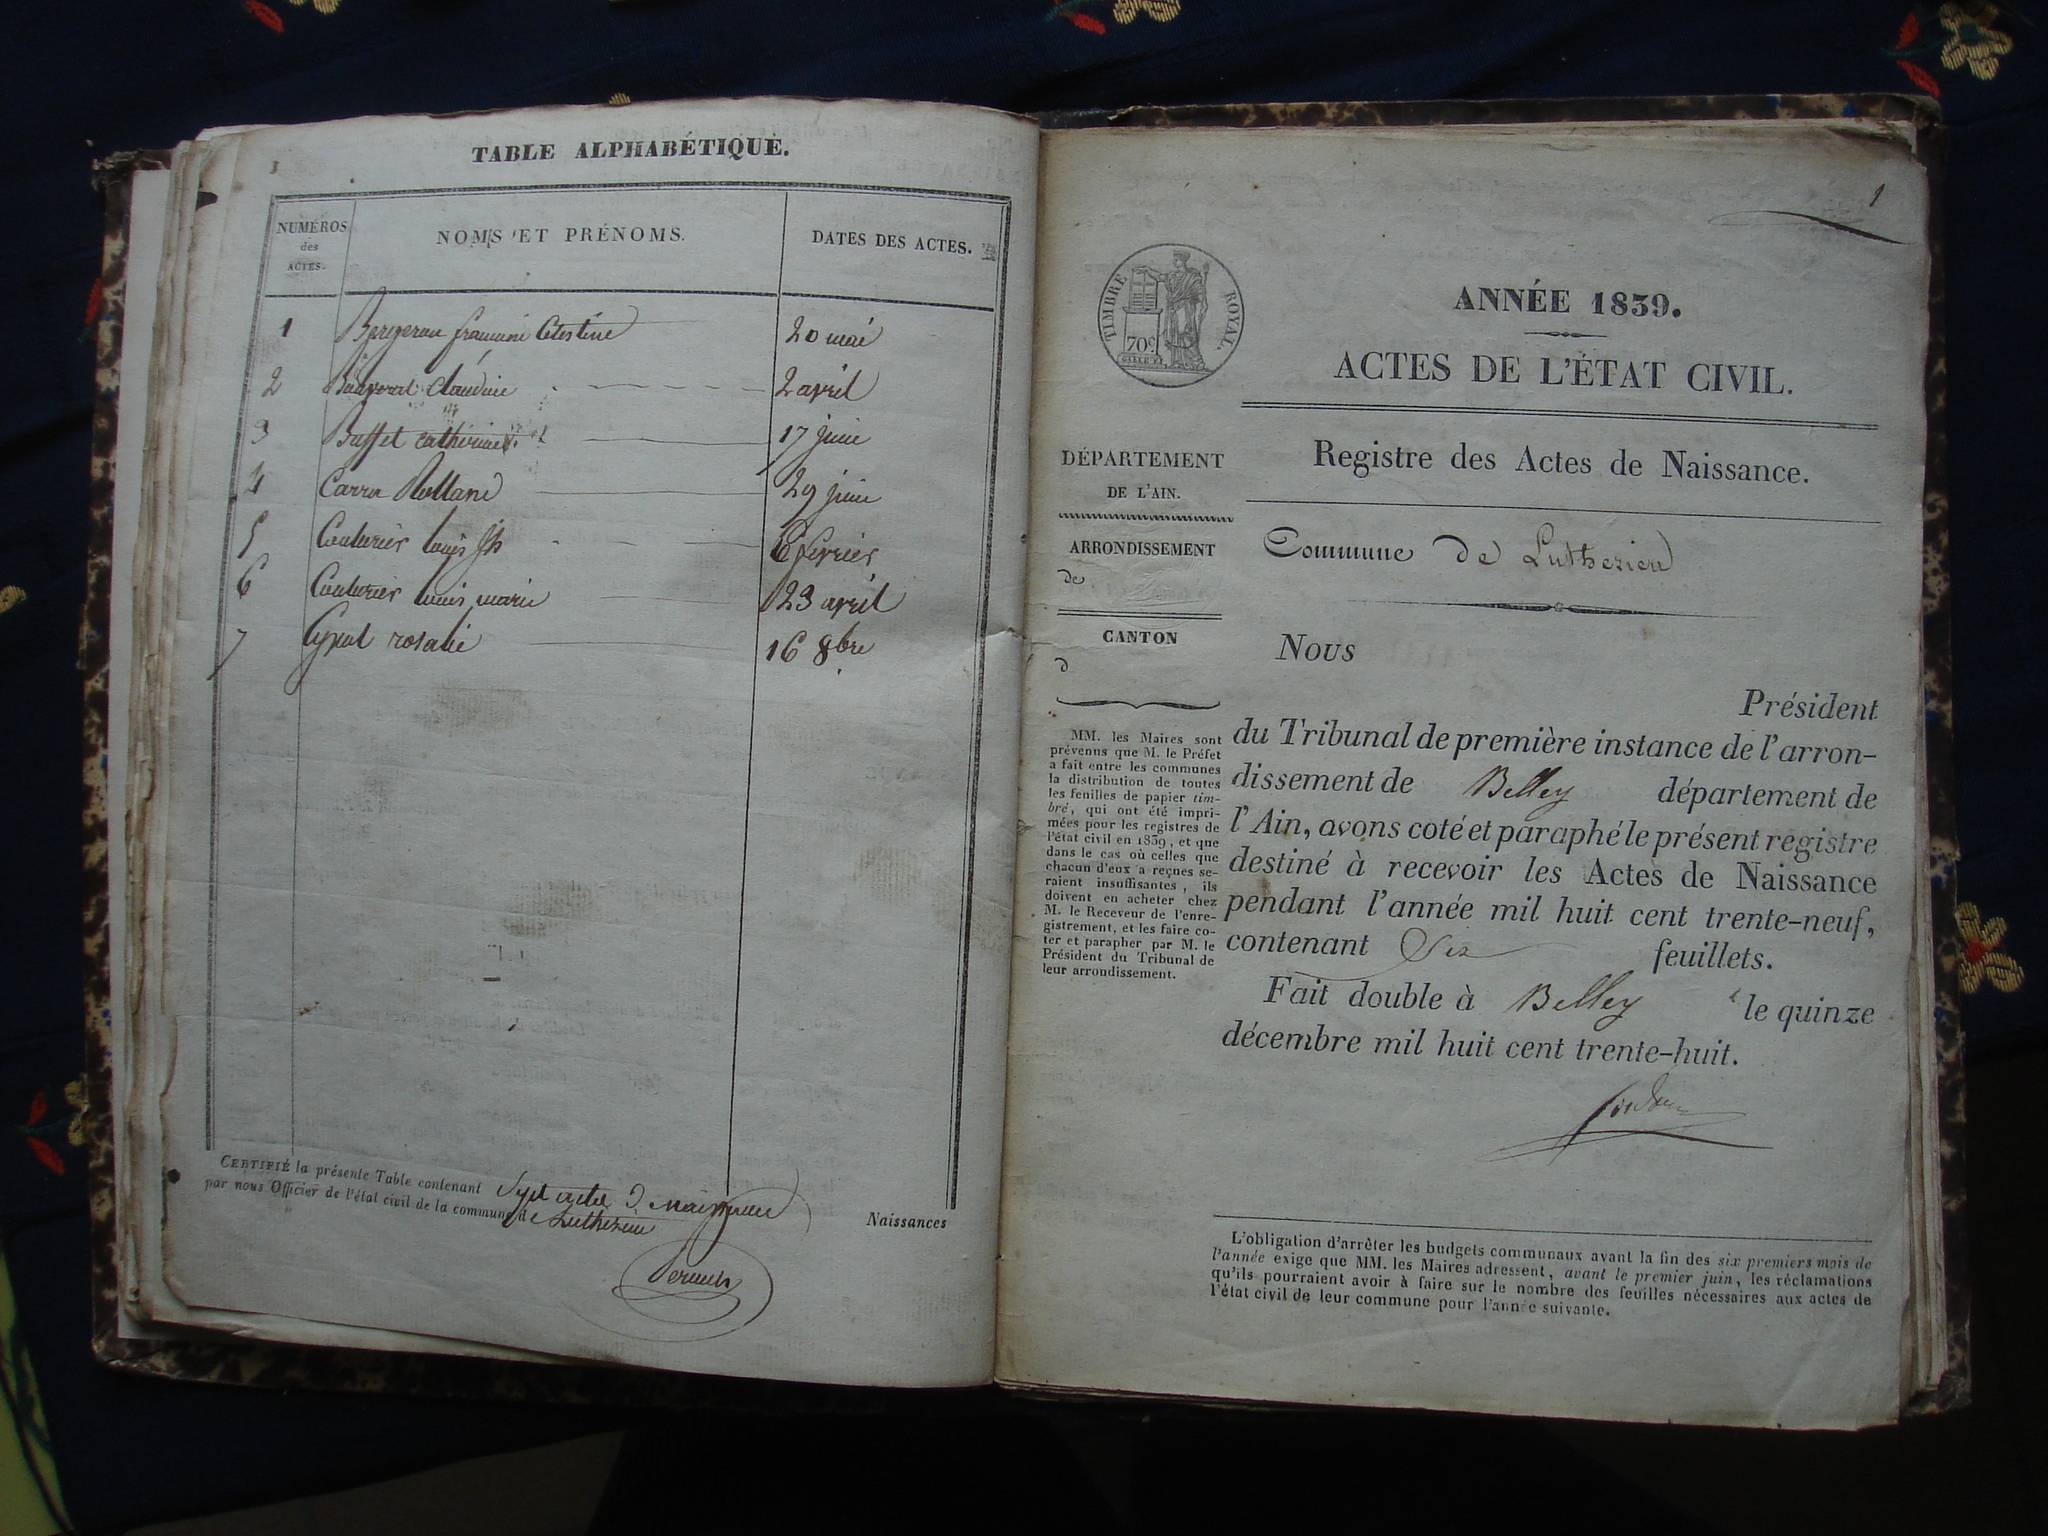 TABLE ALPHABÉTIQUE.
NUMÉROS
des
ACTES.
NOMS ET PRÉNOMS.
DATES DES ACTES.
1 20 mai
2 Claudine 2 avril
3 Buffet Catherine 17 juin
4 Carra 29 juin
5 Couturier Louis Jh 6 fevrier
6 Couturier Louis marie 23 avril
7 rosalie 16 8bre
CERTIFIÉ la présente Table contenant Sept actes de Naissances Naissances
par nous Officier de l'état civil de la commune de Luthezieu
1
TIMBRE ROYAL.
70c
ANNÉE 1839.
ACTES DE L'ÉTAT CIVIL.
Registre des Actes de Naissance.
DÉPARTEMENT
DE L'AIN.
ARRONDISSEMENT
de
CANTON
d
MM. les Maires sont
prévenus que M. le Préfet
a fait entre les communes
la distribution de toutes
les feuilles de papier tim-
bré, qui ont été impri-
mées pour les registres de
l'état civil en 1839, et que
dans le cas où celles que
chacun d'eux a reçues se-
raient insuffisantes, ils
doivent en acheter chez
M. le Receveur de l'enre-
gistrement, et les faire co-
ter et parapher par M. le
Président du Tribunal de
leur arrondissement.
Commune de Luthezieu
Nous
Président
du Tribunal de première instance de l'arron-
dissement de Belley département de
l'Ain, avons coté et paraphé le présent registre
destiné à recevoir les Actes de Naissance
pendant l'année mil huit cent trente-neuf,
contenant Six feuillets.
Fait double à Belley le quinze
décembre mil huit cent trente-huit.
L'obligation d'arrêter les budgets communaux avant la fin des six premiers mois de
l'année exige que MM. les Maires adressent, avant le premier juin, les réclamations
qu'ils pourraient avoir à faire sur le nombre des feuilles nécessaires aux actes de
l'état civil de leur commune pour l'année suivante.